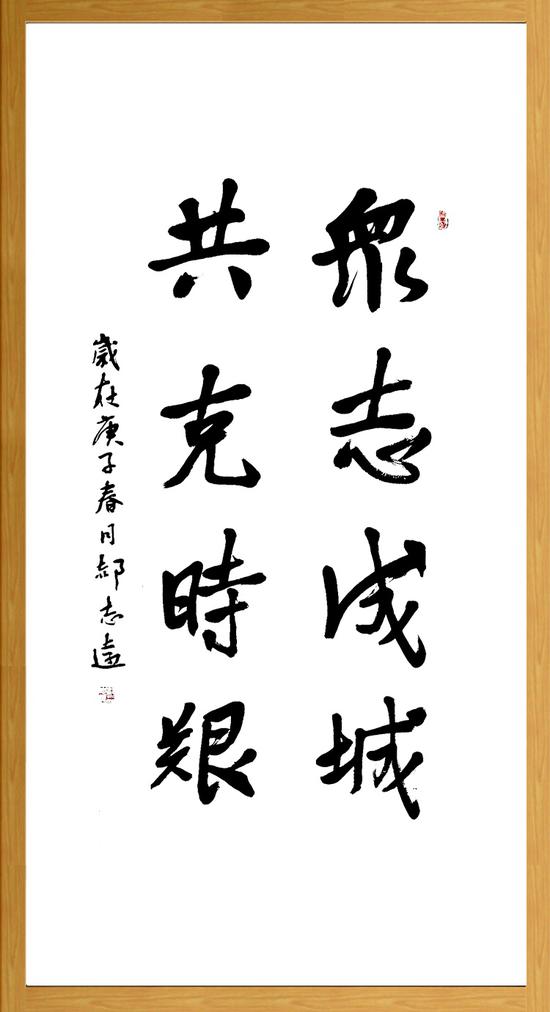 眾志成城
共克時艱
歲在庚子春月郝志遠